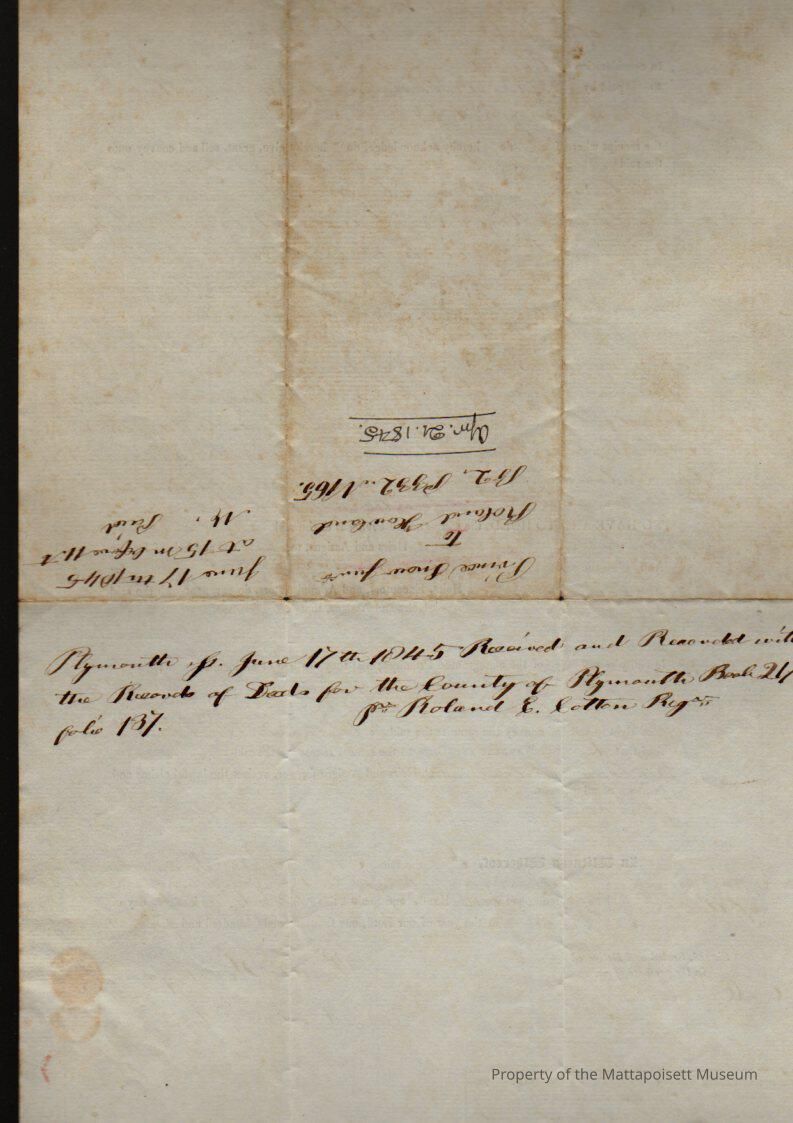 Plymouth ss. June 17th 1845 Received and Recorded with
the Records of Deeds for the County of Plymouth Book
folio 137.
pr Roland E. Cotton Regr
Prince Snow Junr
to
Roland Howland
B 2, P 332
Apr. 21. 1845.
June 17th 1845
at 15 m before 11.
M. Recd
Property of the Mattapoisett Museum